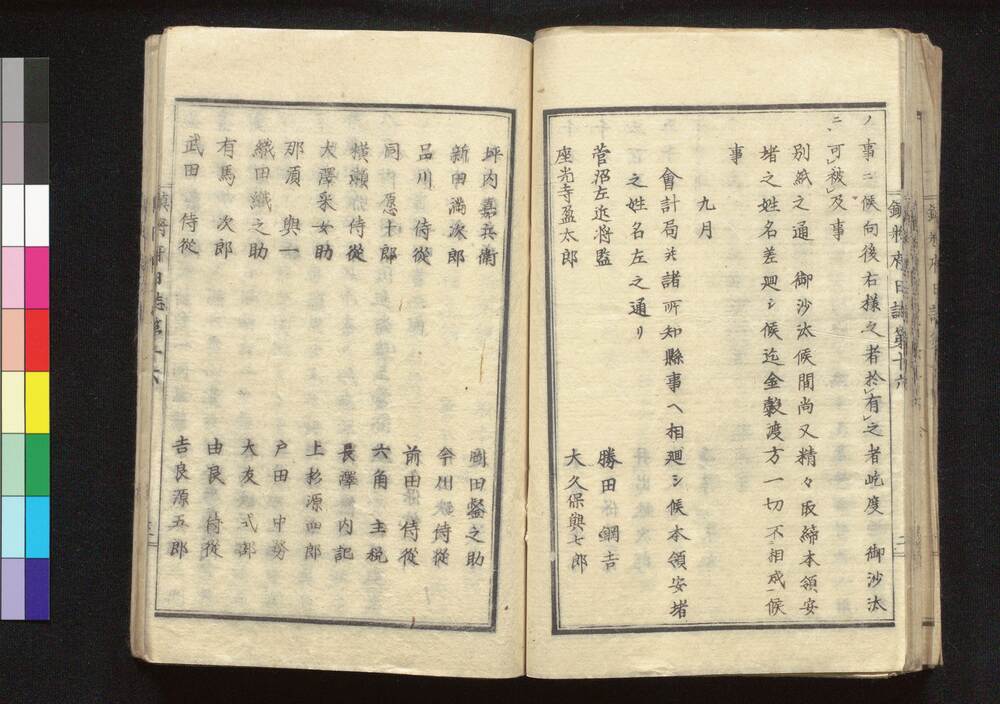 鎮将府日誌第十六
ノ事ニ候向後右様之者於有之者屹度 御沙汰
ニ可被及事
別紙之通 御沙汰候間尚又精々取締本領安
堵之姓名差廻シ候迄金穀渡方一切不相成候
事
九月
會計局ゟ諸所知縣事ヘ相廻シ候本領安堵
之姓名左之通リ
菅沼左近将監 勝田 鋼吉
座光寺盈太郎 大久保與七郎
坪内嘉兵衛 岡田鍳之助
新田満次郎 今川 侍從
品川 侍從 前田 侍從
同 愿十郎 六角 主税
横瀬 侍從 長澤 内記
大澤采女助 上杉源四郎
那須 與一 戸田 中務
織田織之助 大友 式部
有馬 次郎 由良 侍從
武田 侍從 吉良源五郎
鎮将府日誌第十六